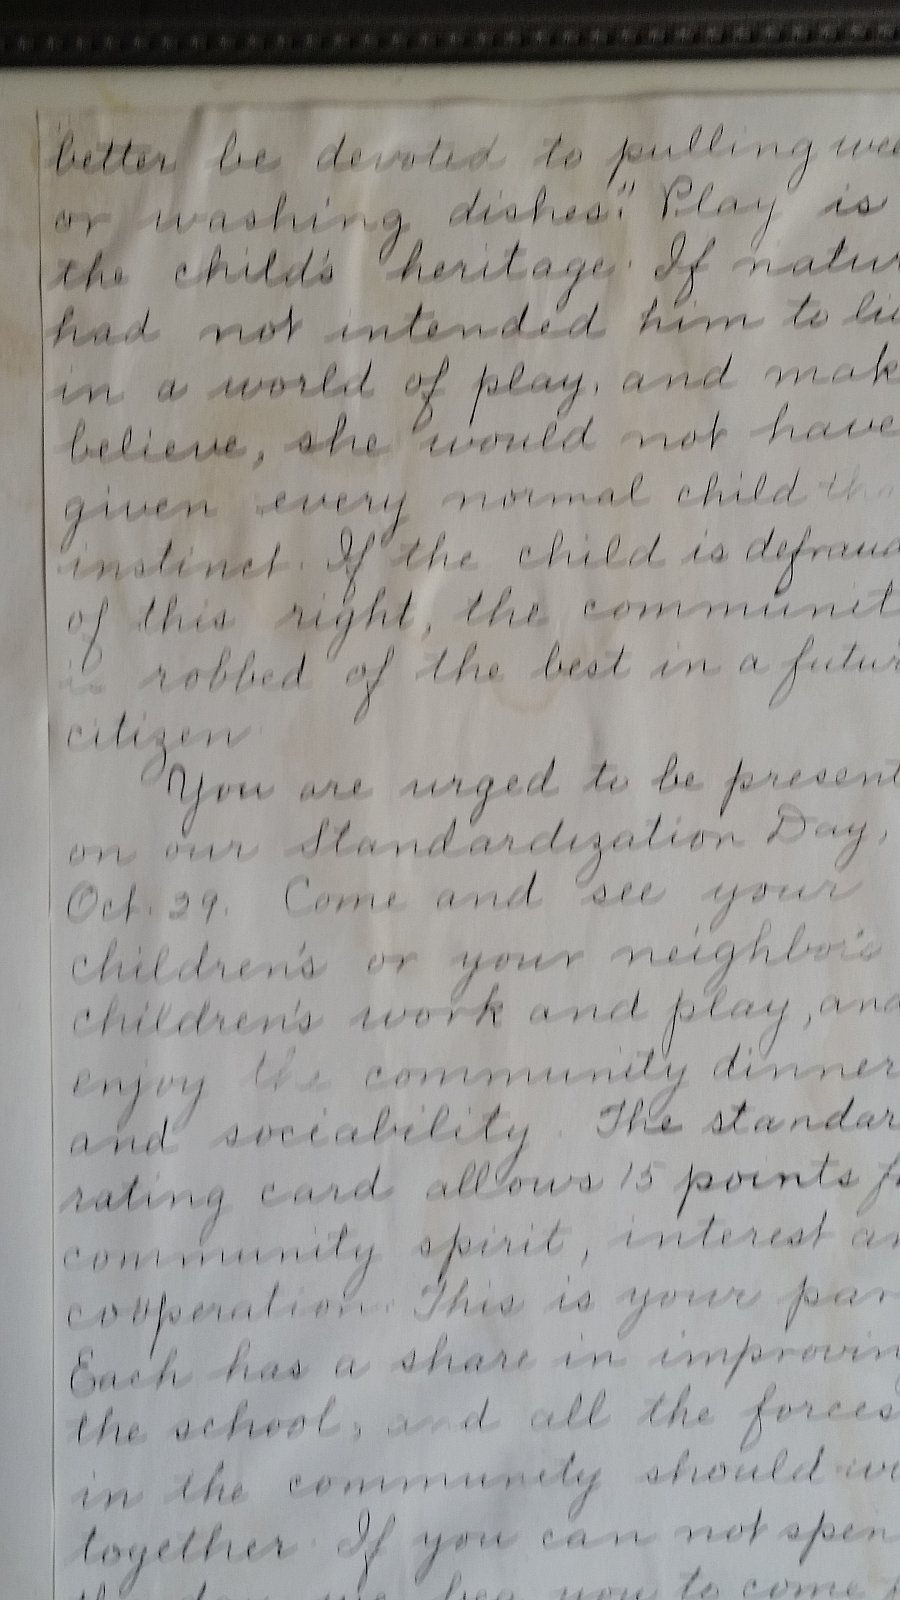 better be devoted to pulling wee
or washing dishes." Play is
the child's heritage. If natur
had not intended him to li
in a world of play, and mak
believe, she would not have
given every normal child tha
instinct. If the child is defraud
of this right, the communit
is robbed of the best in a futur
citizen.
You are urged to be present
on our Standardization Day,
Oct. 29. Come and see your
children's or your neighbor's
children's work and play, and
enjoy the community dinner
and sociability. The standar
rating card allows 15 points f
community spirit, interest an
cooperation. This is your par
Each has a share in improvin
the school, and all the forces
in the community should w
together. If you can not spen
the day, we beg you to come